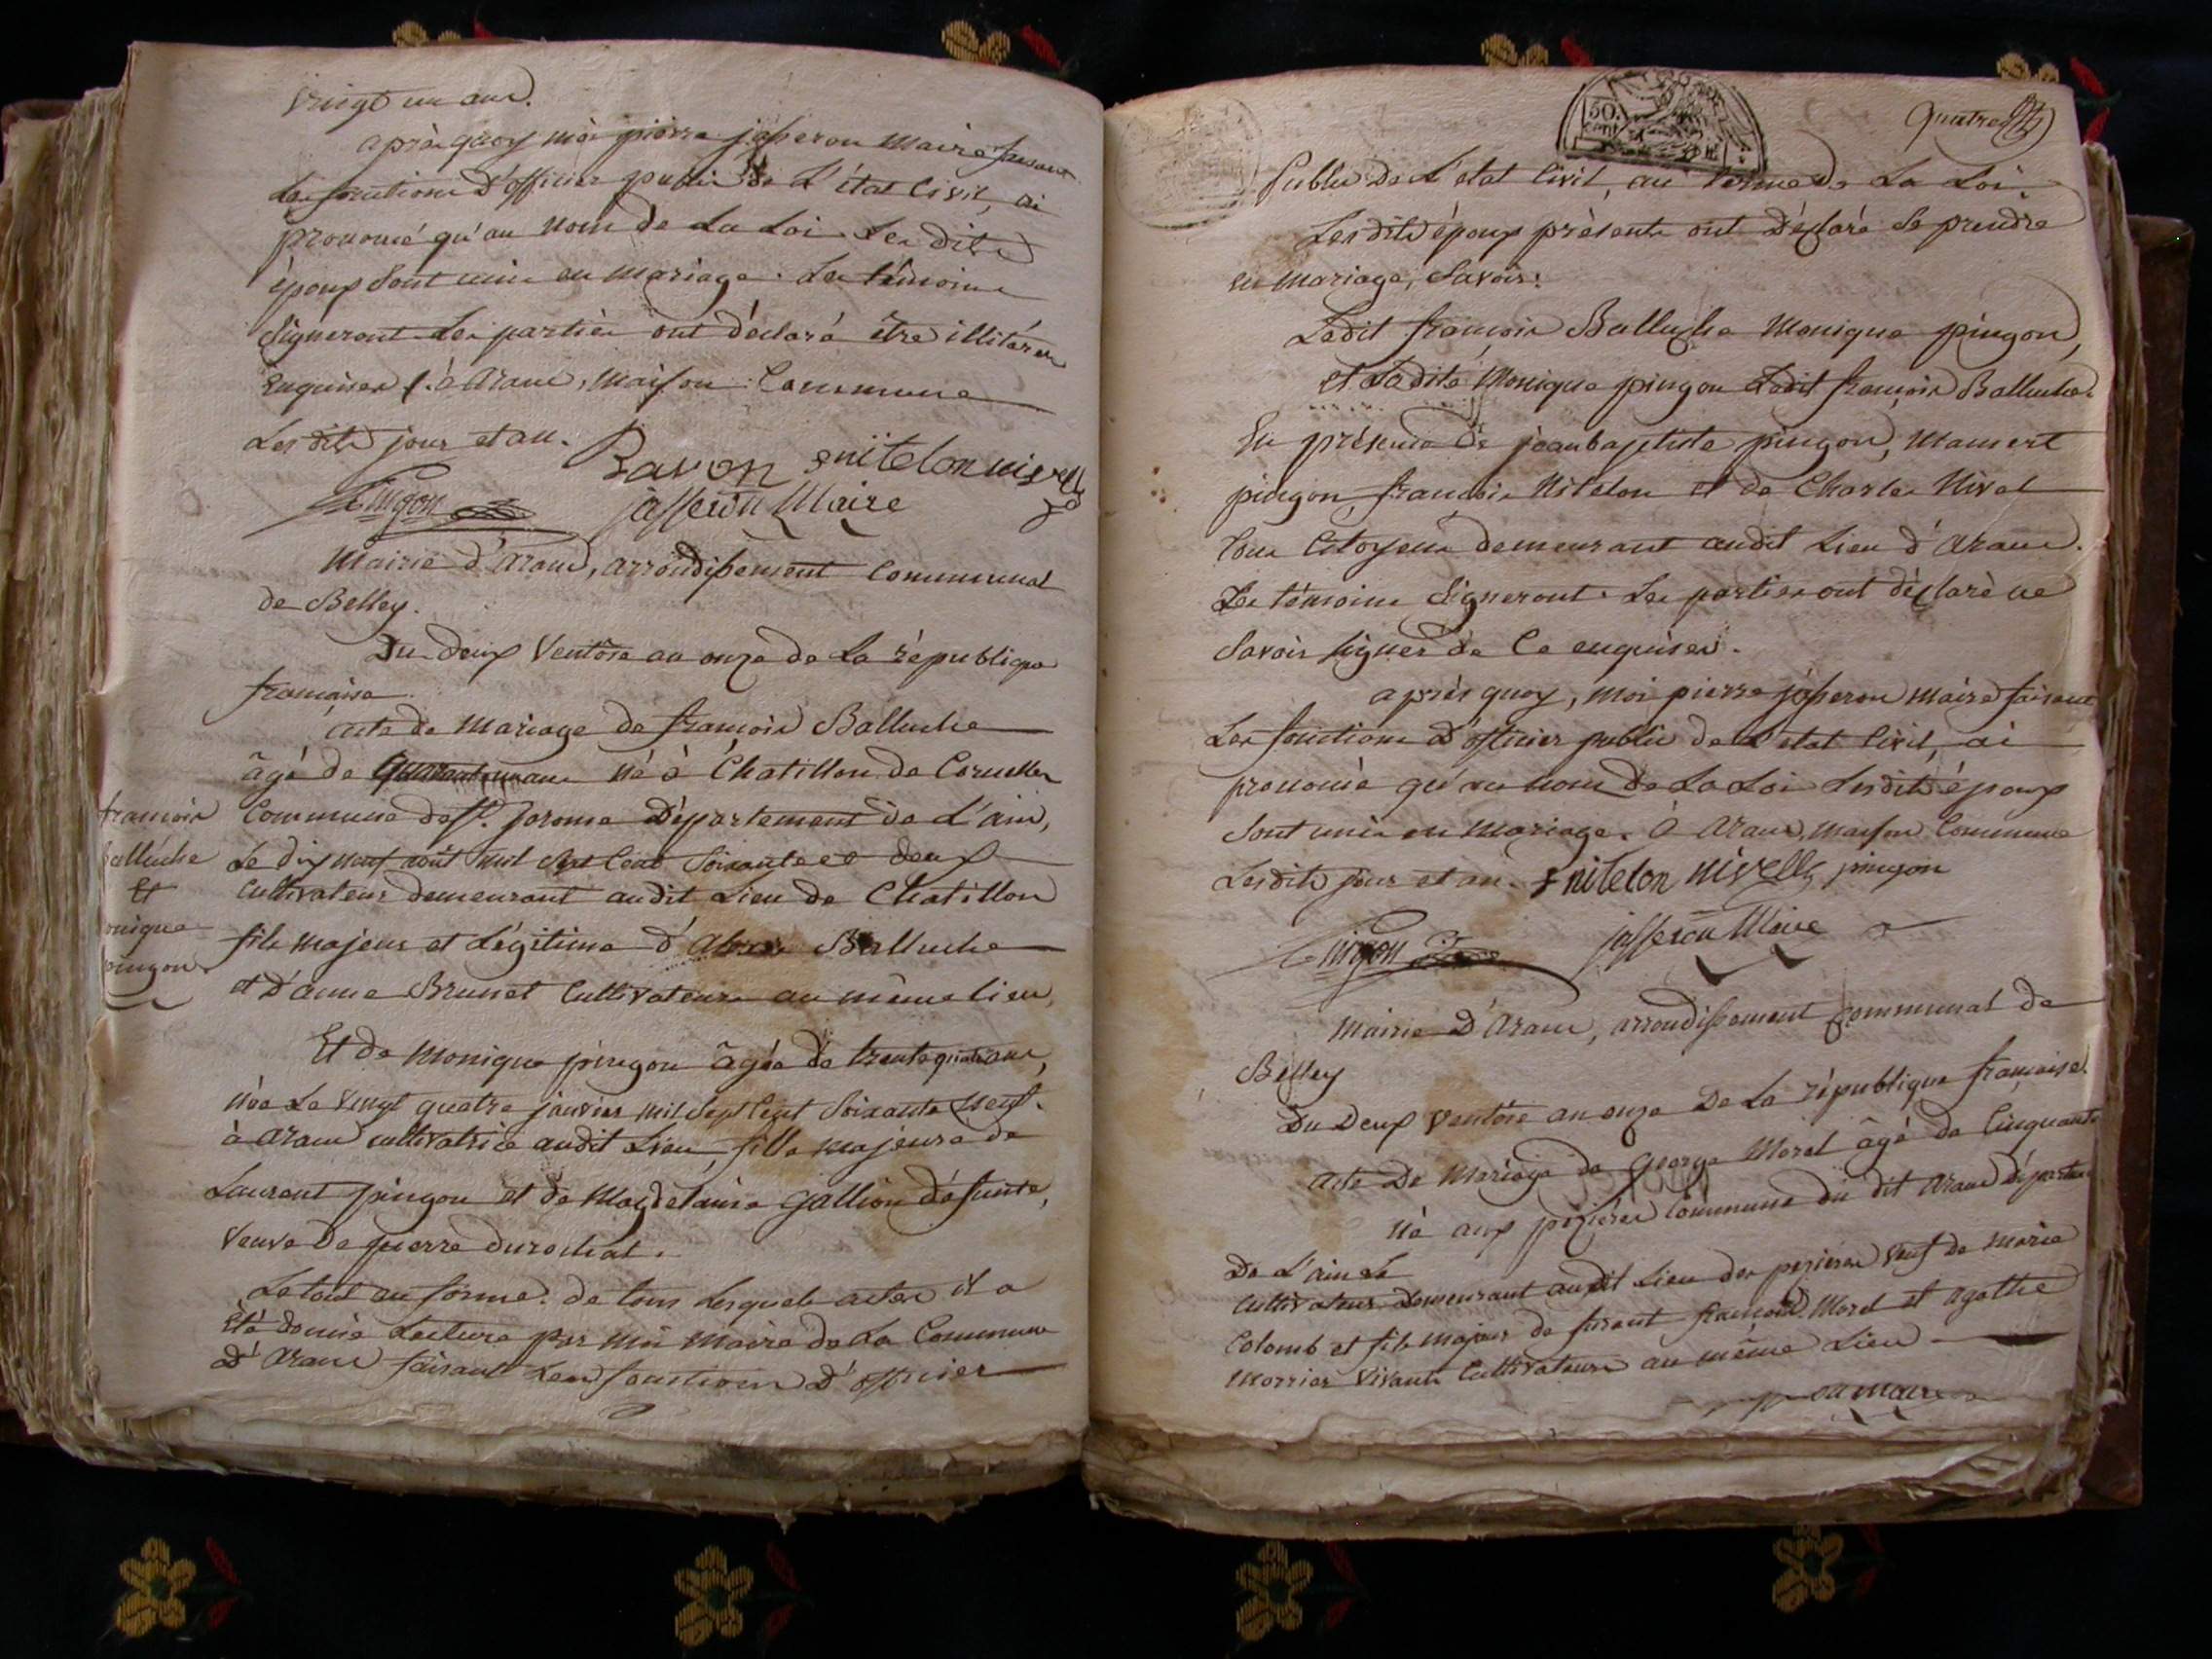 vingt un ans.
après quoy moi pierre jasseron Maire faisant
les fonctions d'officier public de L'état Civil, ai
prononcé qu'au nom de La Loi Les dits
époux sont unis en mariage. Les témoins
signeront Les parties ont déclaré être illitérés
Enquises /. à aranc, maison Commune
Les dits jour et an.
Ravon fnitelon nivelle
Pingon jasseron Maire
Mairie d'aranc, arrondissement Communal
de Belley.
Du deux Ventôse an onze de la république
française.
acte de mariage de françois Balluche
âgé de né à Chatillon de Cornelles
françois
Commune de St. jerome Département de L'ain,
Balluche
Le dix neuf août mil sept Cent soixante et deux
Et
Cultivateur demeurant audit Lieu de Chatillon
monique
fils majeur et Légitime d' Balluche
pingon
et D'anne Brunet Cultivateurs au même lieu,
Et de Monique pingon âgée de trente quatre ans,
née Le vingt quatre janvier mil sept Cent soixante neuf.
à aranc cultivatrice audit Lieu, fille majeure de
Laurent pingon et de Magdelaine Gallion défunte,
veuve de pierre durochat.
Le tout en forme. de tous Lesquels actes il a
été donné Lecture par moi maire de La Commune
D'aranc faisant Les fonctions D'officier
quatre
50. cent
Public De L'état Civil, au terme de La Loi.
Les dits époux présents ont Déclaré se prendre
en mariage, savoir:
Ledit françois Balluche Monique pingon,
et Ladite Monique pingon Ledit françois Balluche.
En présence de jean baptiste pingon, Mamert
pingon, françois Nitelon et de Charles Nivel
tous Citoyens demeurant audit Lieu d'aranc.
Les témoins signeront. Les parties ont déclaré ne
savoir signer de Ce enquises.
après quoy, moi pierre jasseron maire faisant
Les fonctions D'officier public de L'état Civil, ai
prononcé qu'au nom de La Loi Lesdits époux
sont unis en mariage. à aranc, maison Commune
Lesdits jour et an. fnitelon nivelle pingon
Pingon jasseron Maire
Mairie D'aranc, arrondissement Communal de
Belley
Du Deux ventôse an onze De La république française.
acte De mariage de George Morel âgé de Cinquante
né aux pézières Commune du dit aranc départem
De L'ain Le
Cultivateur Demeurant audit Lieu des pezières veuf de marie
Colomb et fils majeur de furent françois Morel et agathe
morrier vivants Cultivateurs au même Lieu
maire